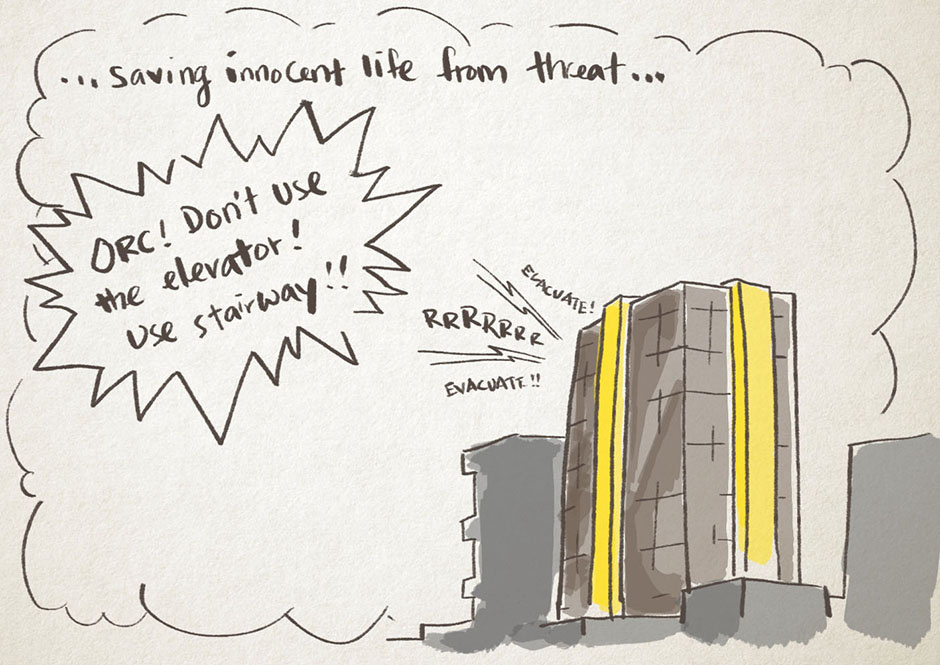 ...saving innocent life from threat...
ORC! Don't use
the elevator!
use stairway!!
EVACUATE!
RRRRRRR
EVACUATE!!